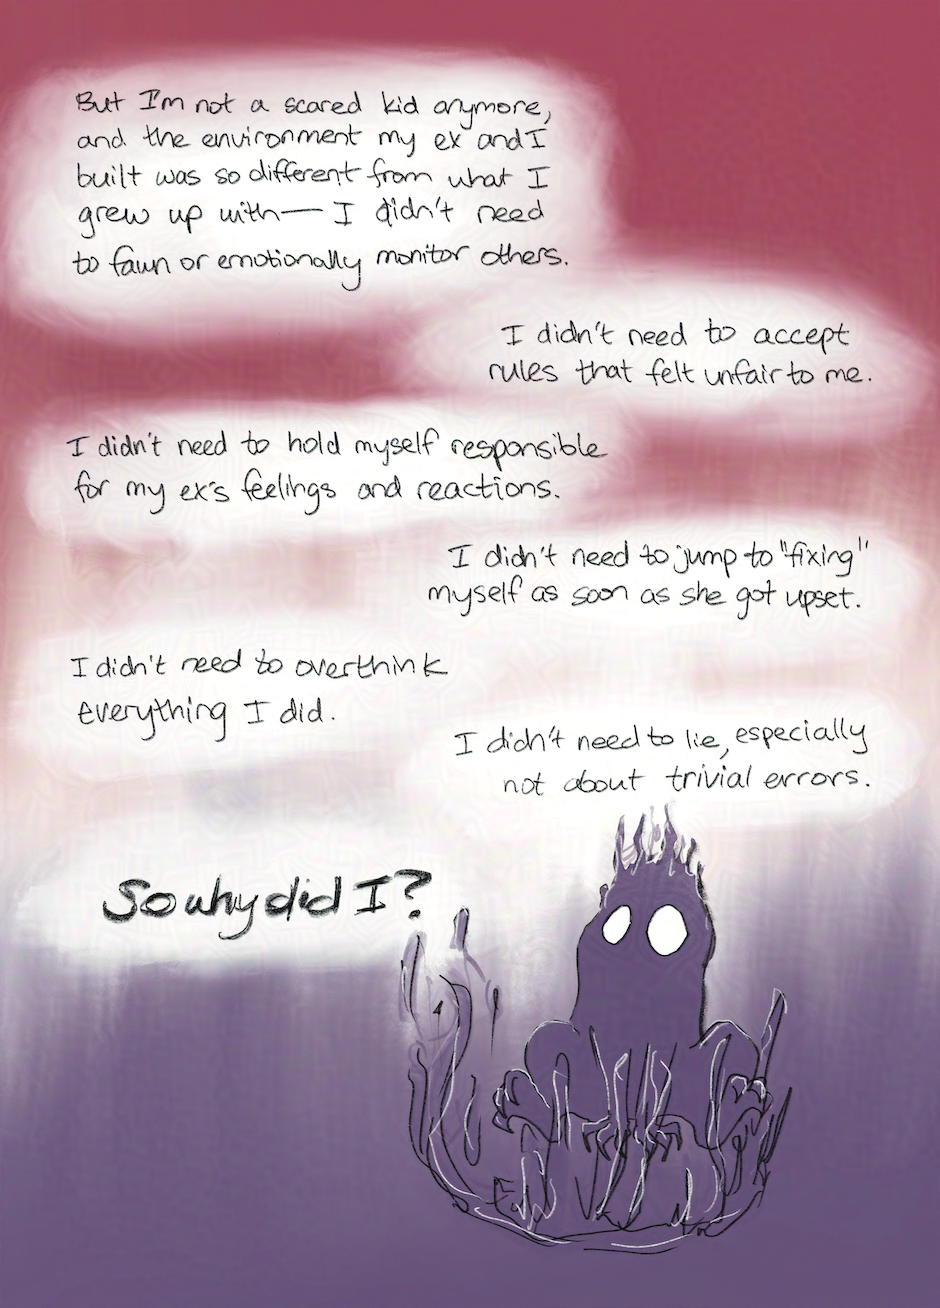 But I'm not a scared kid anymore,
and the environment my ex and I
built was so different from what I
grew up with— I didn't need
to fawn or emotionally monitor others.
I didn't need to accept
rules that felt unfair to me.
I didn't need to hold myself responsible
for my ex's feelings and reactions.
I didn't need to jump to "fixing"
myself as soon as she got upset.
I didn't need to overthink
everything I did.
I didn't need to lie, especially
not about trivial errors.
So why did I?